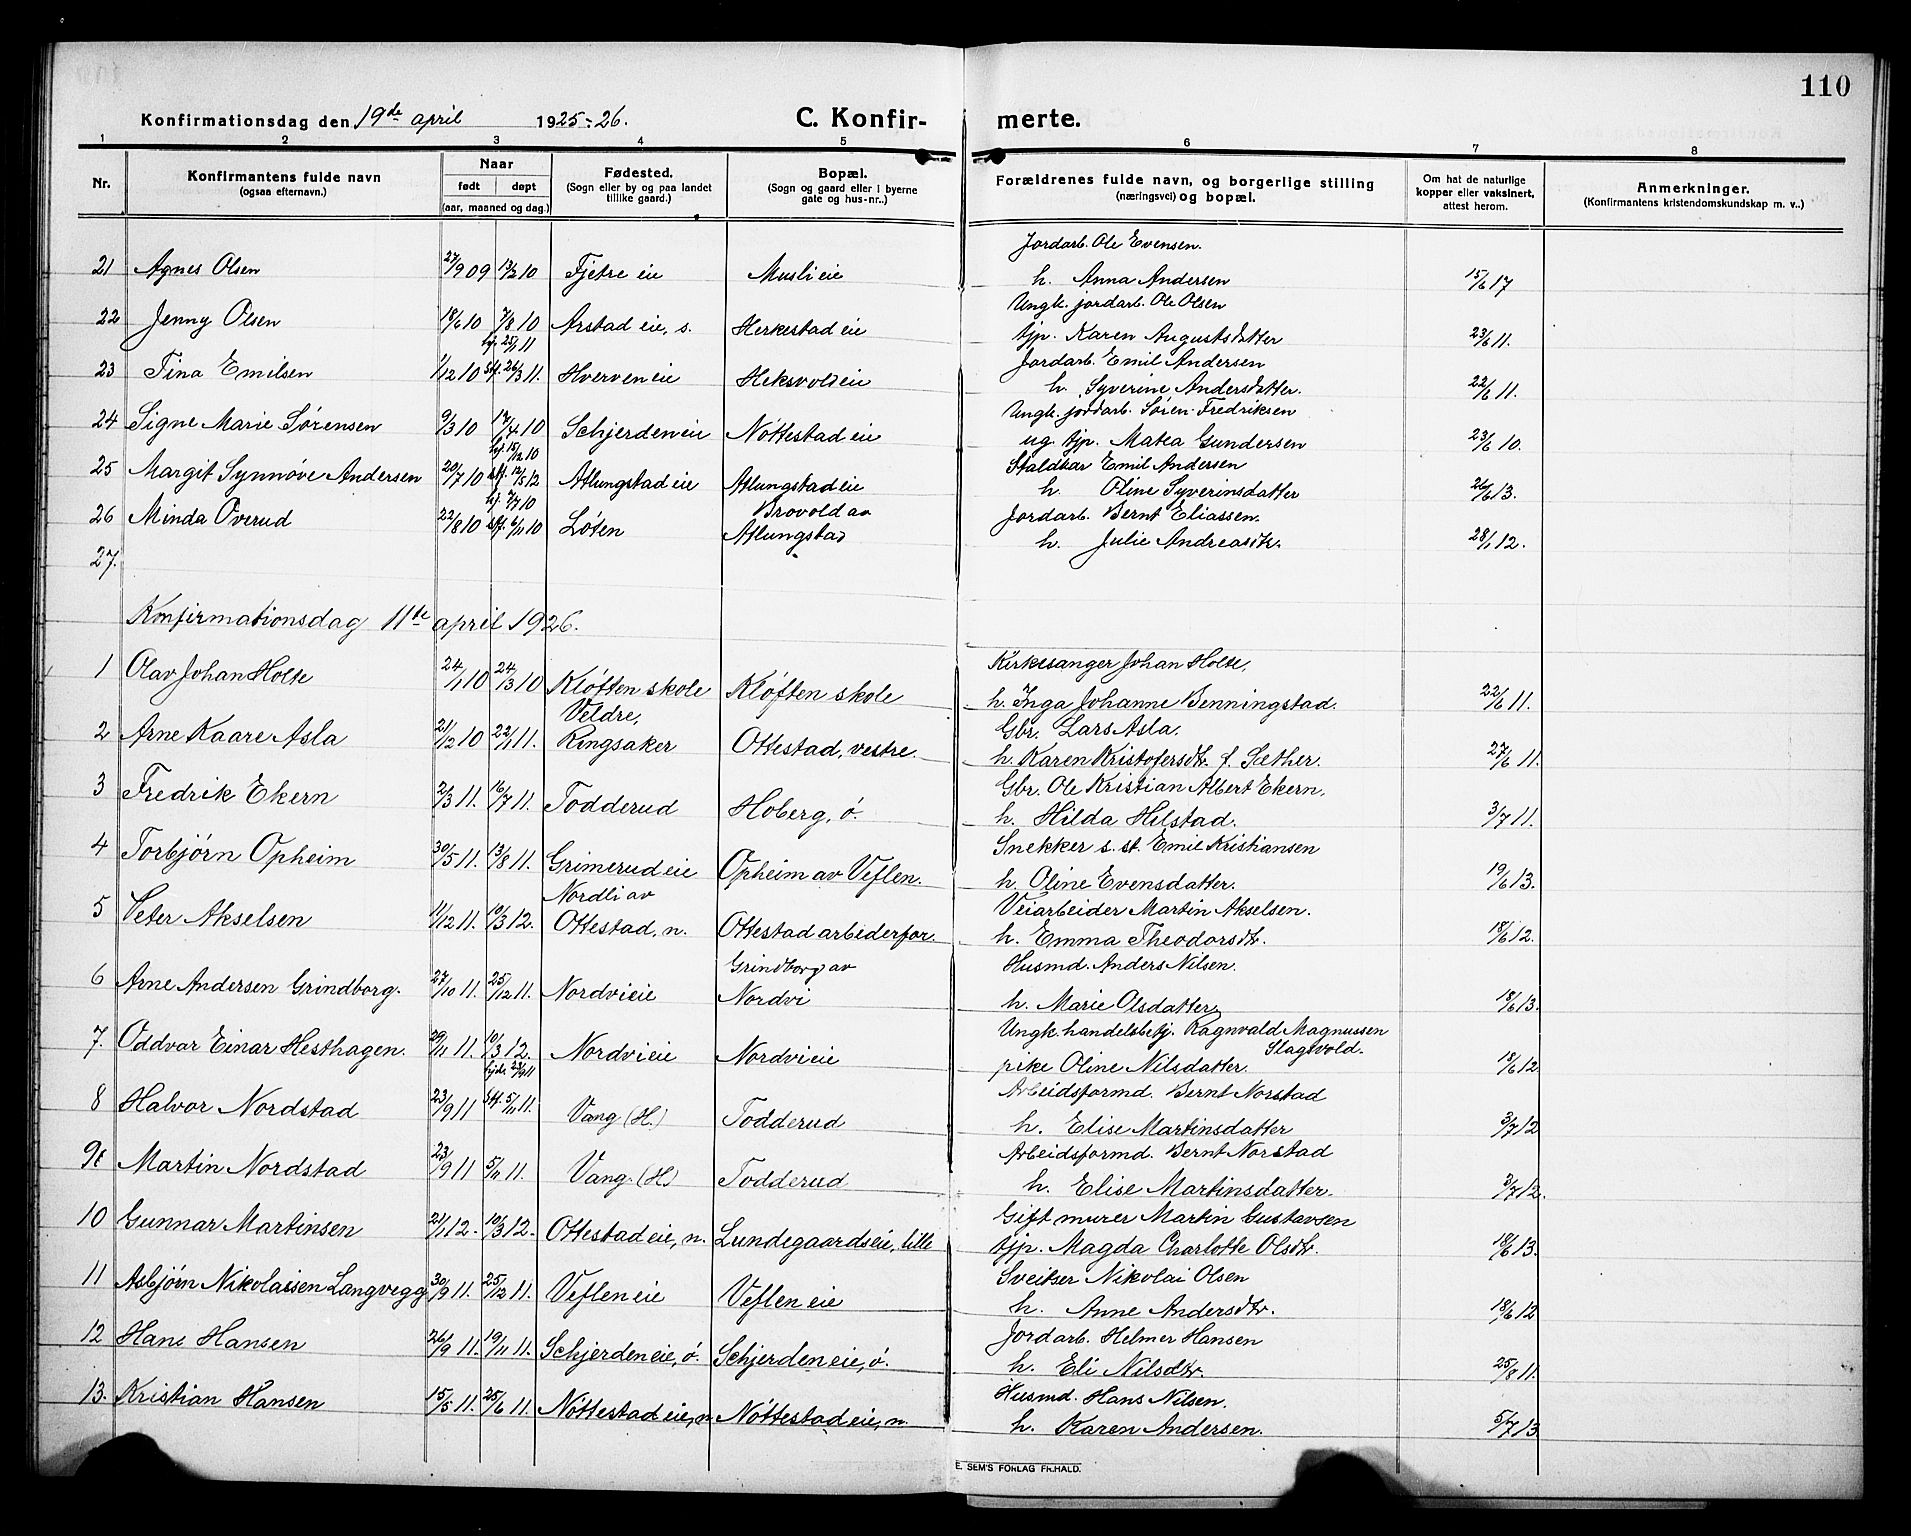 110
Konfirmationsdag den 19de april 1925-26. C. Konfir- merte.
1 2 3 4 5 6 7 8
Nr. Konfirmantens fulde navn (ogsaa efternavn.) Naar født døpt (aar, maaned og dag.) Fødested. (Sogn eller by og paa landet tillike gaard.) Bopæl. (Sogn og gaard eller i byerne gate og hus-nr..) Forældrenes fulde navn, og borgerlige stilling (næringsvei) og bopæl. Om hat de naturlige kopper eller vaksinert, attest herom. Anmerkninger. (Konfirmantens kristendomskundskap m. v..)
Jordarb. Ole Evensen.
21 Agnes Olsen 27/9 09 13/2 10 Fjetre eie Musli eie h. Anna Andersen 15/6 17
Ungk. jordarb. Ole Olsen
22 Jenny Olsen 18/6 10 7/8 10 Arstad eie, s. Herkestad eie tjp. Karen Augustsdatter 23/6 11.
hj. 25/1 11 Jordarb. Emil Andersen
23 Tina Emilsen 1/12 10 stf. 26/3 11. Hverven eie Heksvold eie h. Syverine Andersdatter. 22/6 11.
Ungk. jordarb. Søren Fredriksen
24 Signe Marie Sørensen 9/3 10 17/4 10 Schjerden eie Nøttestad eie ug. tjp. Matea Gundersen 23/6 10.
hj. 15/12 10 Staldkar Emil Andersen
25 Margit Synnøve Andersen 20/7 10 stf. 12/5 12 Atlungstad eie Atlungstad eie h. Oline Syverinsdatter 26/6 13.
hj. 7/7 10 Brovold av Jordarb. Bernt Eliassen.
26 Minda Overud 22/8 10 stf. 6/11 10 Løten Atlungstad h. Julie Andreasdtr. 28/1 12.
27.
Konfirmationsdag 11te april 1926.
Kirkesanger Johan Holte.
1 Olav Johan Holte 24/1 10 24/3 10 Kløften skole Kløften skole h. Inga Johanne Benningstad. 22/6 11.
Veldre, Gbr. Lars Asla.
2 Arne Kaare Asla 21/12 10 22/1 11. Ringsaker Ottestad, vestre. h. Karen Kristofersdtr. f. Sæther. 27/6 11.
Gbr. Ole Kristian Albert Ekern.
3 Fredrik Ekern 2/3 11. 16/7 11. Todderud Hoberg, ø. h. Hilda Hilstad. 3/7 11.
Snekker s. st. Emil Kristiansen
4 Torbjørn Opheim 30/5 11. 13/8 11. Grimerud eie Opheim av Veflen. h. Oline Evensdatter. 19/6 13.
Nordli av Veiarbeider Martin Akselsen.
5 Peter Akselsen 11/12 11. 10/3 12. Ottestad, n. Ottestad arbeiderfor. h. Emma Theodorsdtr. 18/6 12.
Grindborg av Husmd. Anders Nilsen.
6 Arne Andersen Grindborg. 27/10 11. 25/12 11. Nordvi eie Nordvi h. Marie Olsdatter 18/6 13.
Ungk. handelsbetj. Ragnvald Magnussen Slagsvold.
7. Oddvar Einar Hesthagen. 29/11 11. 10/3 12. Nordvi eie Nordvi eie pike Oline Nilsdatter. 18/6 12
hjd. 23/9 11 Arbeidsformd. Bernt Norstad
8 Halvor Nordstad 23/9 11 stf. 5/11 11. Vang (H.) Todderud h. Elise Martinsdatter 3/7 12
Arbeidsformd. Bernt Norstad
9 Martin Nordstad 23/9 11 5/11 11. Vang. (H) Todderud h. Elise Martinsdatter. 3/7 12.
Gift murer Martin Gustavsen
10 Gunnar Martinsen 21/1 12. 10/3 12. Ottestad eie, n. Lundegaards eie, lille tjp. Magda Charlotte Olsdtr. 18/6 13.
Sveitser Nikolai Olsen
11 Asbjørn Nikolaisen Langvegg 30/9 11. 25/12 11. Veflen eie Veflen eie h. Anne Andersdtr. 18/6 12
Jordarb. Helmer Hansen
12 Hans Hansen 26/9 11. 19/11 11. Schjerden eie, ø. Schjerden eie, ø. h. Eli Nilsdtr. 25/8 11.
Husmd. Hans Nilsen.
13. Kristian Hansen 15/5 11. 25/6 11. Nøttestad eie, n. Nøttestad eie, n. h. Karen Andersen. 5/7 13
E. SEM'S FORLAG FR.HALD.